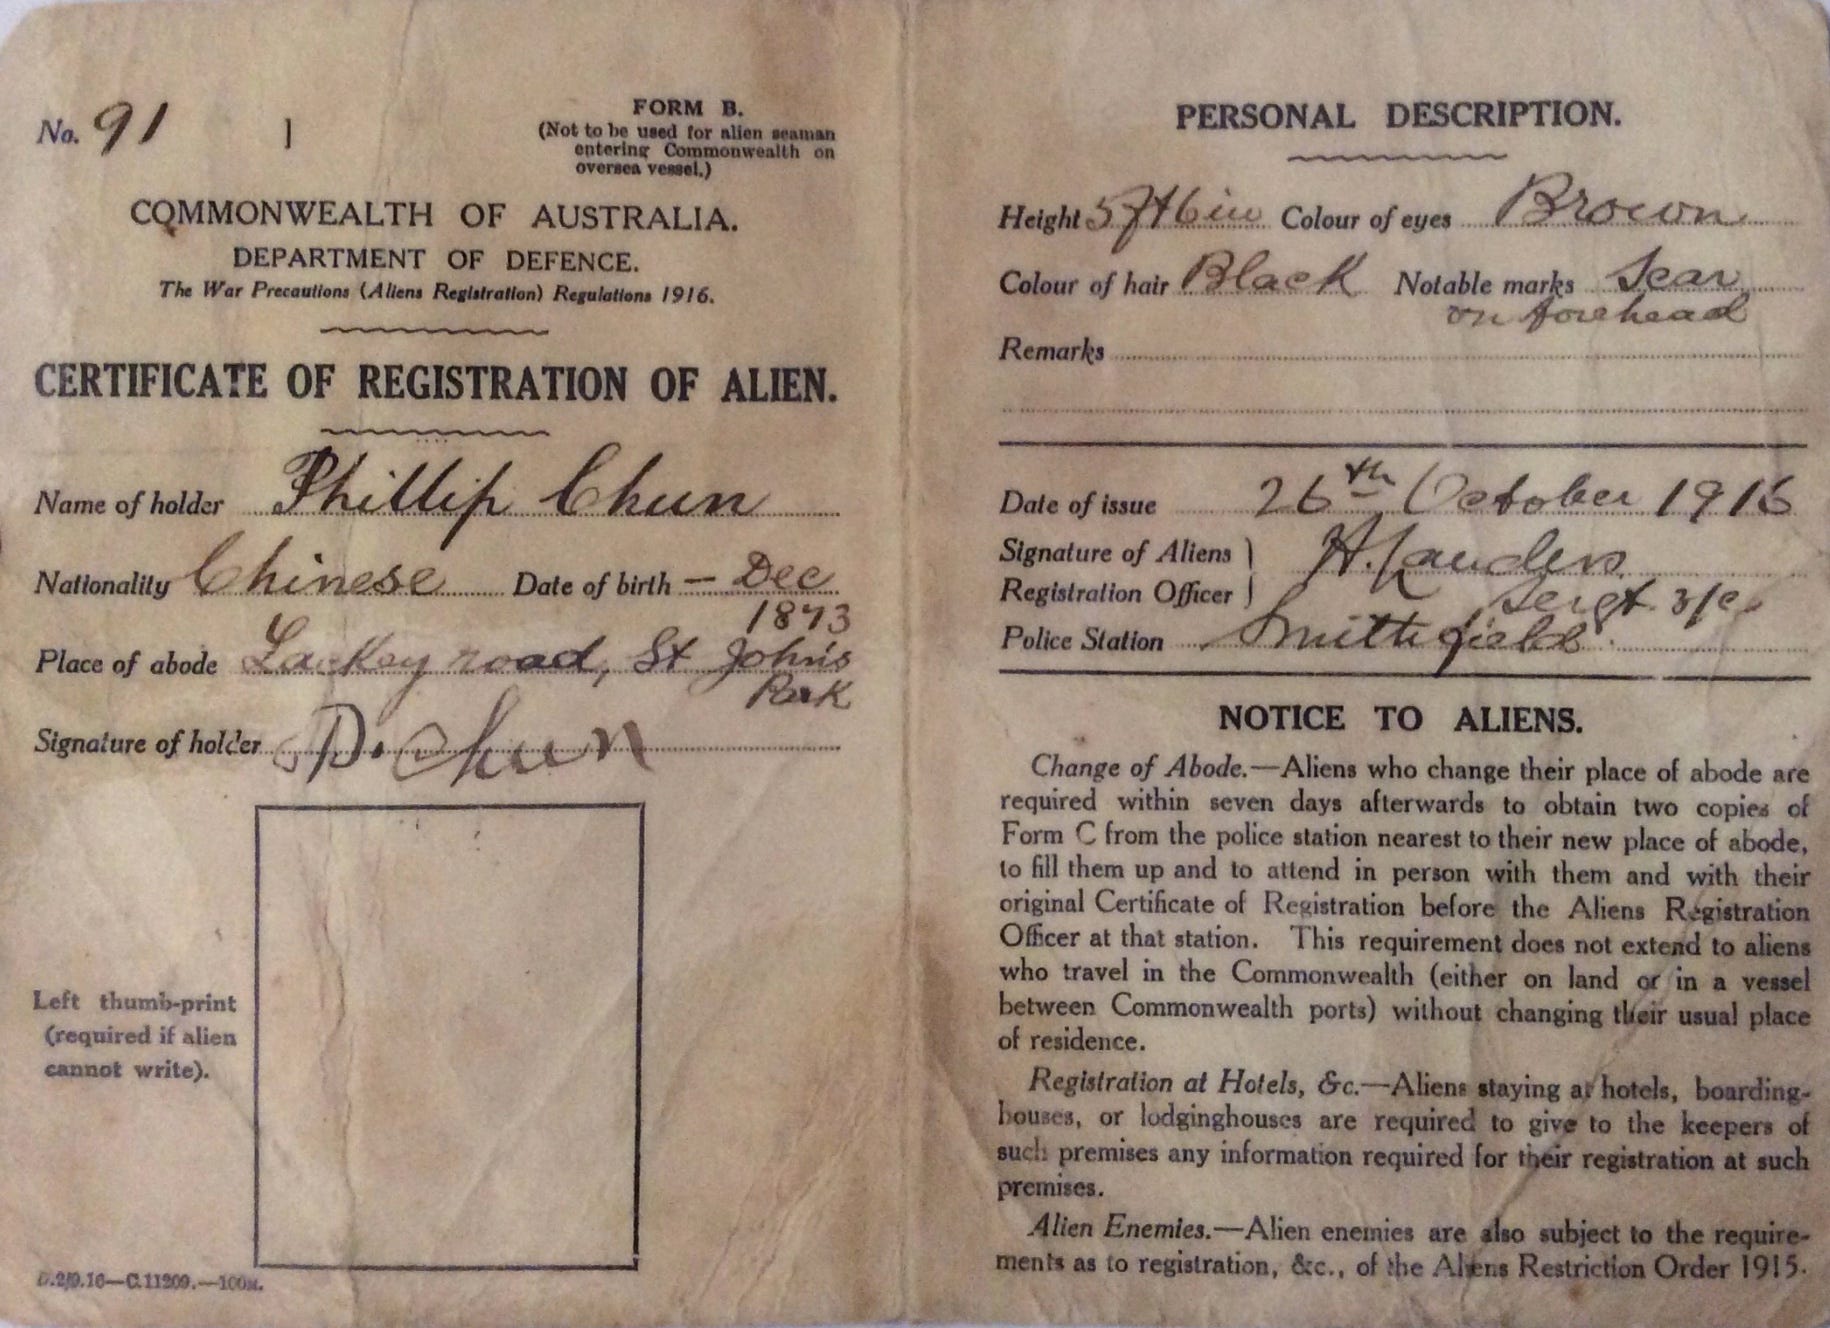 No. 91
FORM B.
(Not to be used for alien seaman
entering Commonwealth on
oversea vessel.)
COMMONWEALTH OF AUSTRALIA.
DEPARTMENT OF DEFENCE.
The War Precautions (Aliens Registration) Regulations 1916.
CERTIFICATE OF REGISTRATION OF ALIEN.
Name of holder Phillip Chun
Nationality Chinese Date of birth – Dec
1873
Place of abode Lackey road, St Johns
Park
Signature of holder P. Chun
Left thumb-print
(required if alien
cannot write).
D.2/9.16—C.11209.—100M.
PERSONAL DESCRIPTION.
Height 5ft 6in Colour of eyes Brown
Colour of hair Black Notable marks Scar
on forehead
Remarks
Date of issue 26th October 1916
Signature of Aliens
Registration Officer
Sergt
Police Station Smithfield
NOTICE TO ALIENS.
Change of Abode.—Aliens who change their place of abode are
required within seven days afterwards to obtain two copies of
Form C from the police station nearest to their new place of abode,
to fill them up and to attend in person with them and with their
original Certificate of Registration before the Aliens Registration
Officer at that station. This requirement does not extend to aliens
who travel in the Commonwealth (either on land or in a vessel
between Commonwealth ports) without changing their usual place
of residence.
Registration at Hotels, &c.—Aliens staying at hotels, boarding-
houses, or lodginghouses are required to give to the keepers of
such premises any information required for their registration at such
premises.
Alien Enemies.—Alien enemies are also subject to the require-
ments as to registration, &c., of the Aliens Restriction Order 1915.